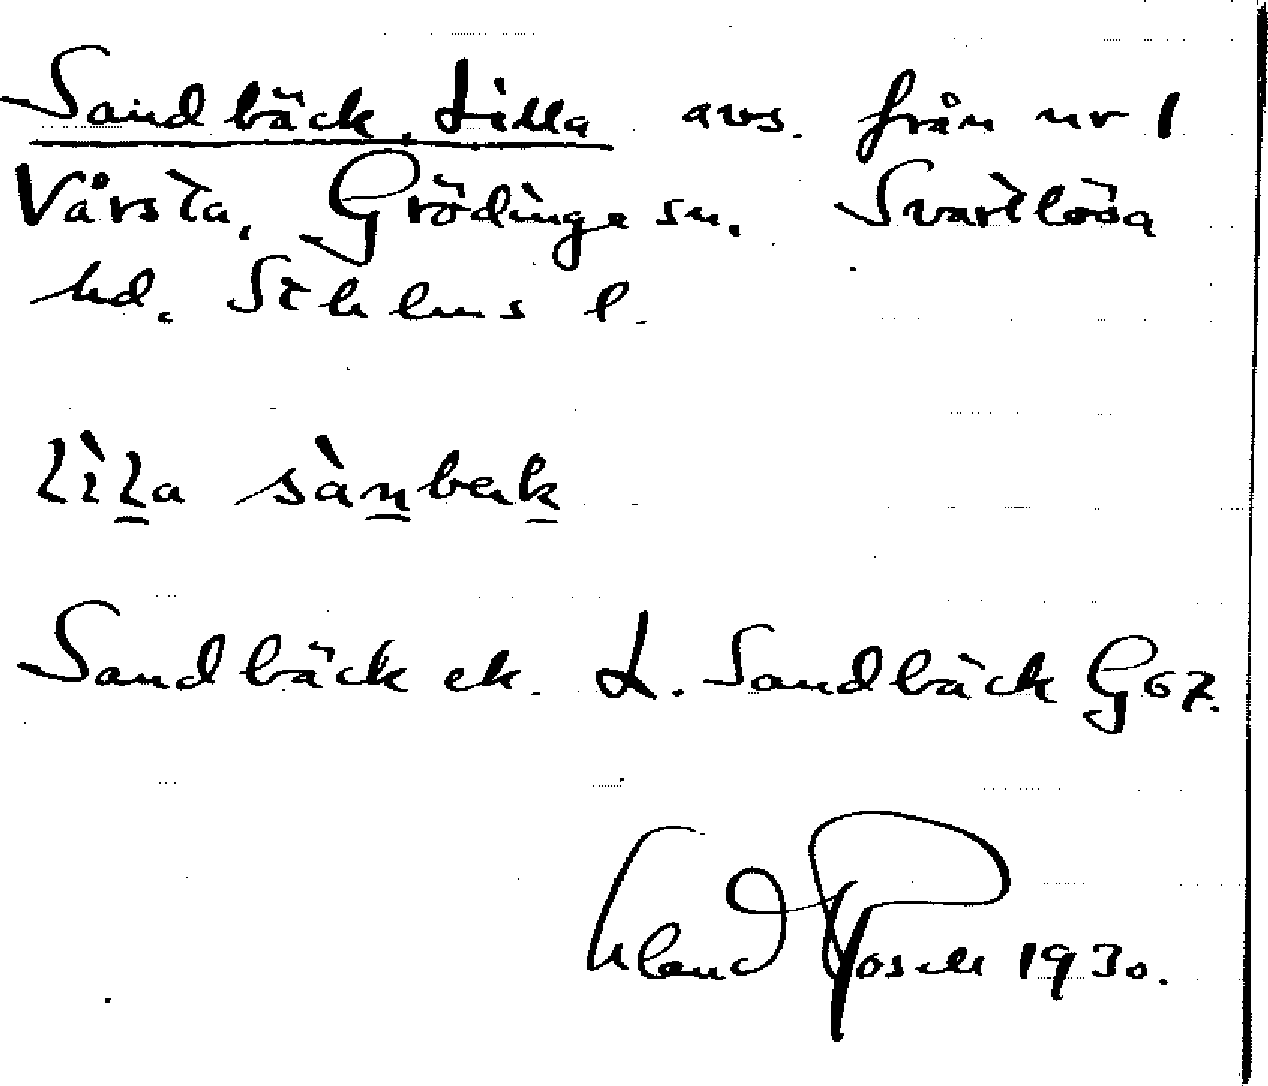 Sandbäck, Lilla avs. från nr 1
Vårsta, Grödinge sn. Svartlösa
hd. Sthlms l.
lìl̠a sàn̠bæk̠
Sandbäck ek. L. Sandbäck G 67.
Erland Rosell 1930.